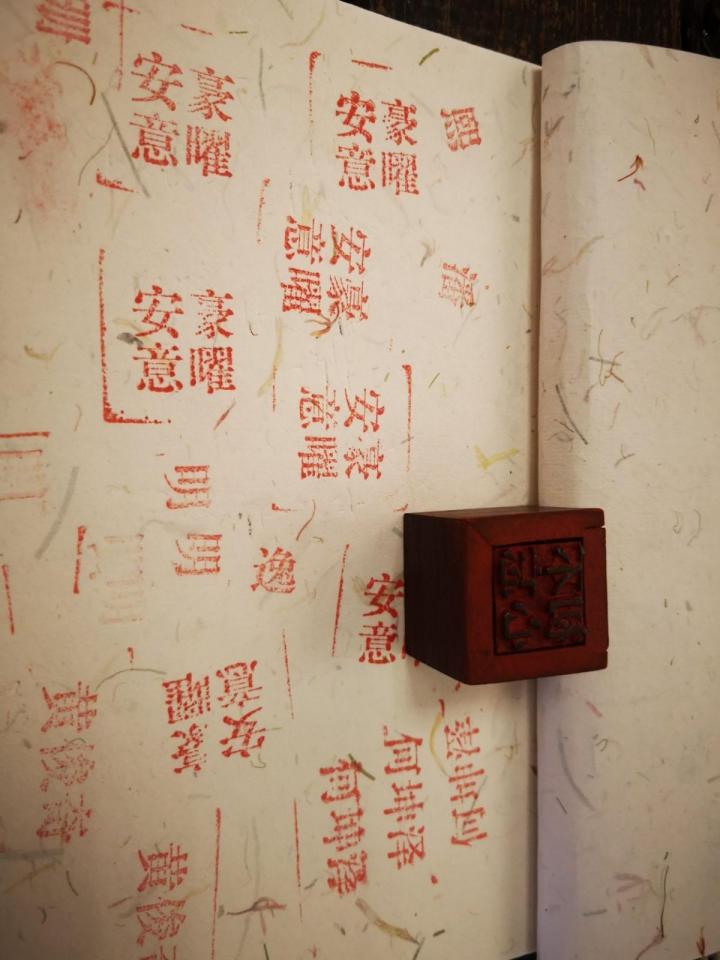 豪曜
安意
豪曜
安意
熙
潘
安豪
意曜
豪曜
安意
安豪
意曜
明
明
逸
安
意
安豪
意曜
何坤泽
何坤泽
黄俊奇
黄俊奇